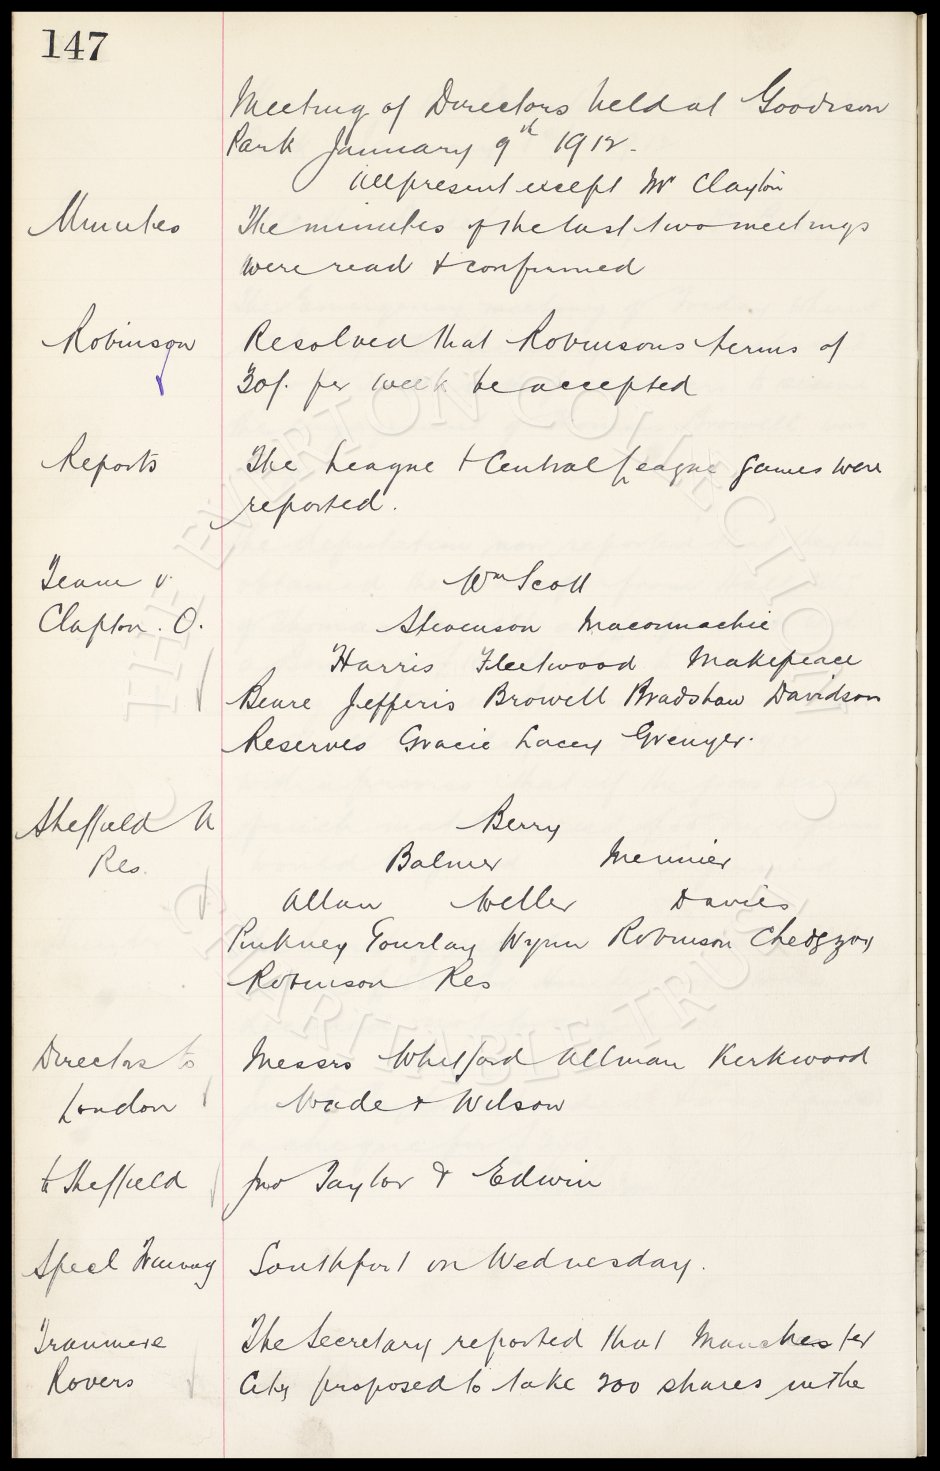 147
Meeting of Directors held at Goodison
Park January 9th 1912.
All present except Mr Clayton
Minutes The minutes of the last two meetings
were read & confirmed
Robinson Resolved that Robinsons terms of
30/. per week be accepted
Reports The League & Central League games were
reported.
Team v. Wm Scott
Clapton. O. Stevenson Maconnachie
Harris Fleetwood Makepeace
Beare Jefferis Browell Bradshaw Davidson
Reserves Gracie Lacey Grenyer.
Sheffield U Berry
Res. Balmer Meunier
Allan Weller Davies
Pinkney Gourlay Wynn Robinson Chedgzoy
Robinson Res
Directors to Messrs Whitford Allman Kirkwood
London Wade & Wilson
to Sheffield Jno Taylor & Edwin
Specl Training Southport on Wednesday.
Tranmere The Secretary reported that Manchester
Rovers City proposed to take 200 shares in the
THE EVERTON COLLECTION
CHARITABLE TRUST